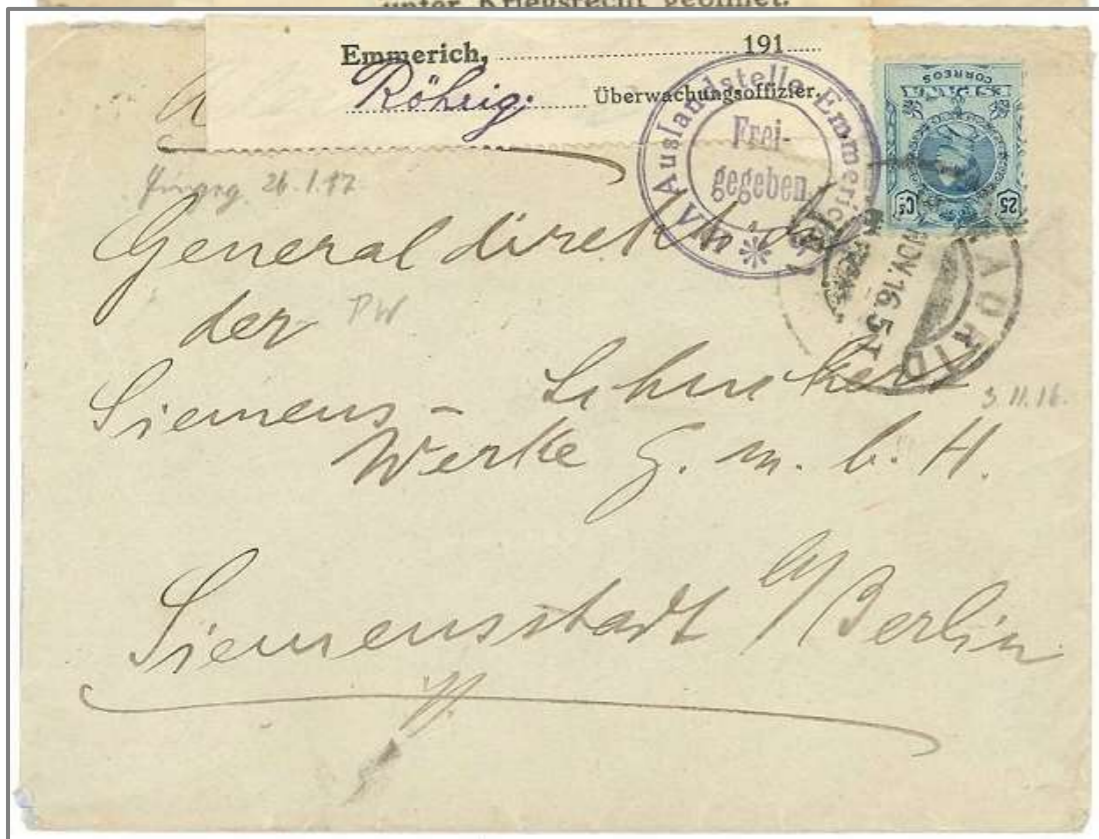 unter Kriegsrecht geöffnet.
Emmerich, ........................ 191......
Röhrig. Überwachungsoffizier.
Auslandstelle Emmerich
Frei-
gegeben
CORREOS
25 Cs
MADRID
NOV.16.5T
26.1.17
Generaldirektion
der PW
Siemens - Schuckert
3.11.16.
Werke G. m. b. H.
Siemensstadt b/Berlin